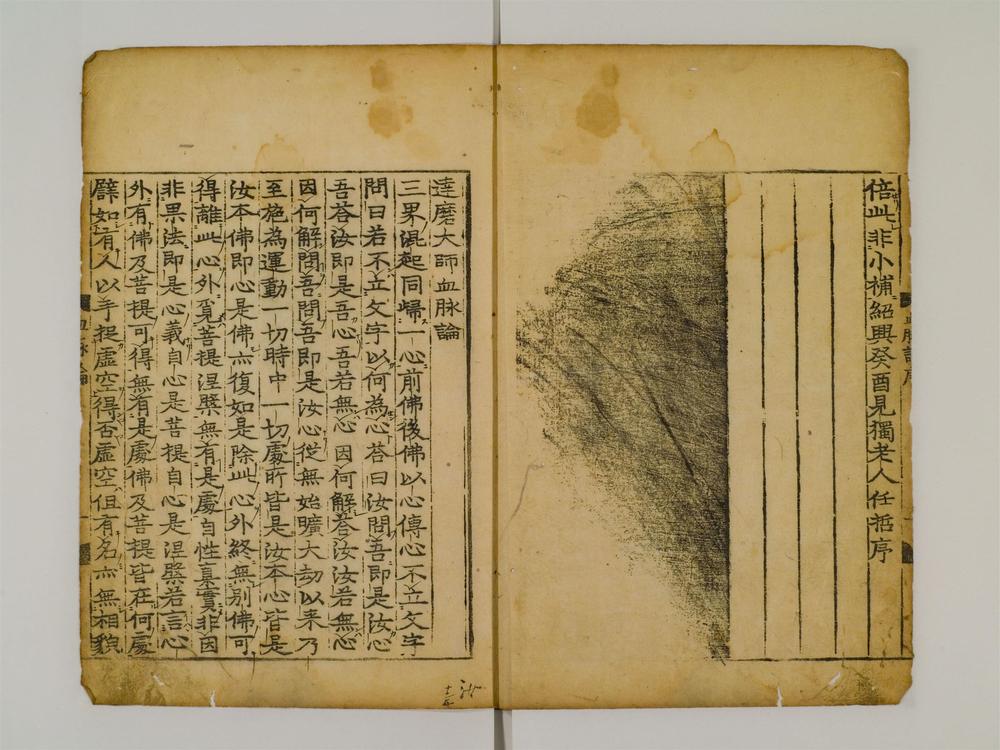 倍此非小補紹興癸酉見獨老人任哲序
達磨大師血脉論
三界混起同歸一心前佛後佛以心傳心不立文字
問曰若不立文字以何為心荅曰汝問吾即是汝心
吾荅汝即是吾心吾若無心因何解荅汝汝若無心
因何解問吾問吾即是汝心從無始曠大劫以来乃
至施為運動一切時中一切處所皆是汝本心皆是
汝本佛即心是佛亦復如是除此心外終無別佛可
得離此心外覓菩提涅槃無有是處自性真實非因
非果法即是心義自心是菩提自心是涅槃若言心
外有佛及菩提可得無有是處佛及菩提皆在何處
譬如有人以手捉虛空得否虛空但有名亦無相貌